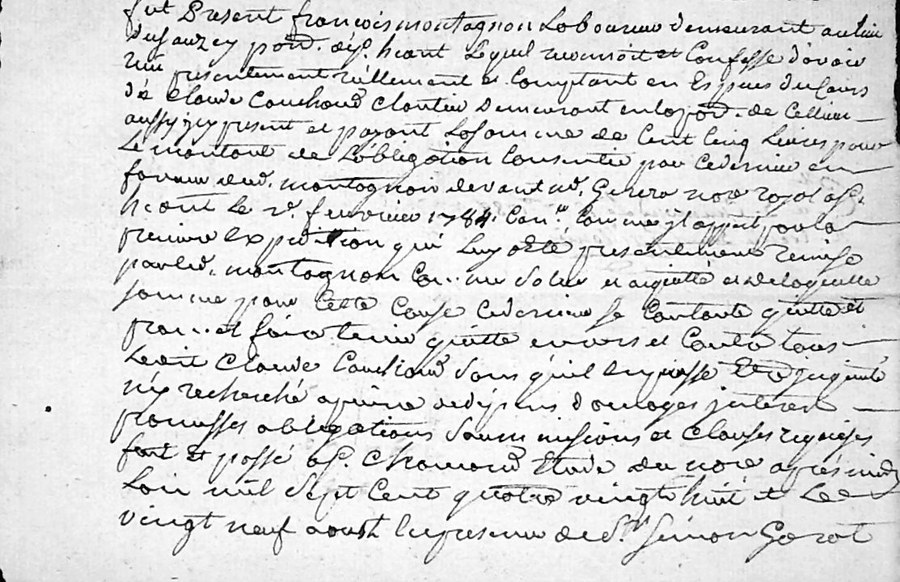 fut Present françois montagnon Laboureur demeurant au lieu
du Sauzey par. d'iz. hieant Lequel reconnoit et Confesse d'avoir
reçu présentement réellement et Comptant en Espèces du Cours
de Claude Couchoud Clautier Demeurant en la par. de Cellieu
aussy icy present et payant La Somme de Cent Cinq Livres pour
Le montant de L'obligation Consentie par Ce dernier en
faveur dud. montagnon devant me. not.re royal
Le 2e. fevrier 1784. Con.lé Comme il appert par la
premiere Expedition qui Luy a Eté presentement remise
par led. montagnon Comme Solue et aquitté et de laquelle
somme pour Cette Cause Ce dernier Se Contente quitte et
prom. et faire tenir quitte envers et Contre tous
Ledit Claude Couchoud Sans qu'il en puisse Etre inquieté
n'y recherché a peine de depens domages interets
promesses obligations Soumissions et Clauses requises
fait et passé a St. Chamond Etude du not.re après midy
L'an mil Sept Cent quatre vingt huit et Le
vingt neuf aoust En presence de Sr. Simon